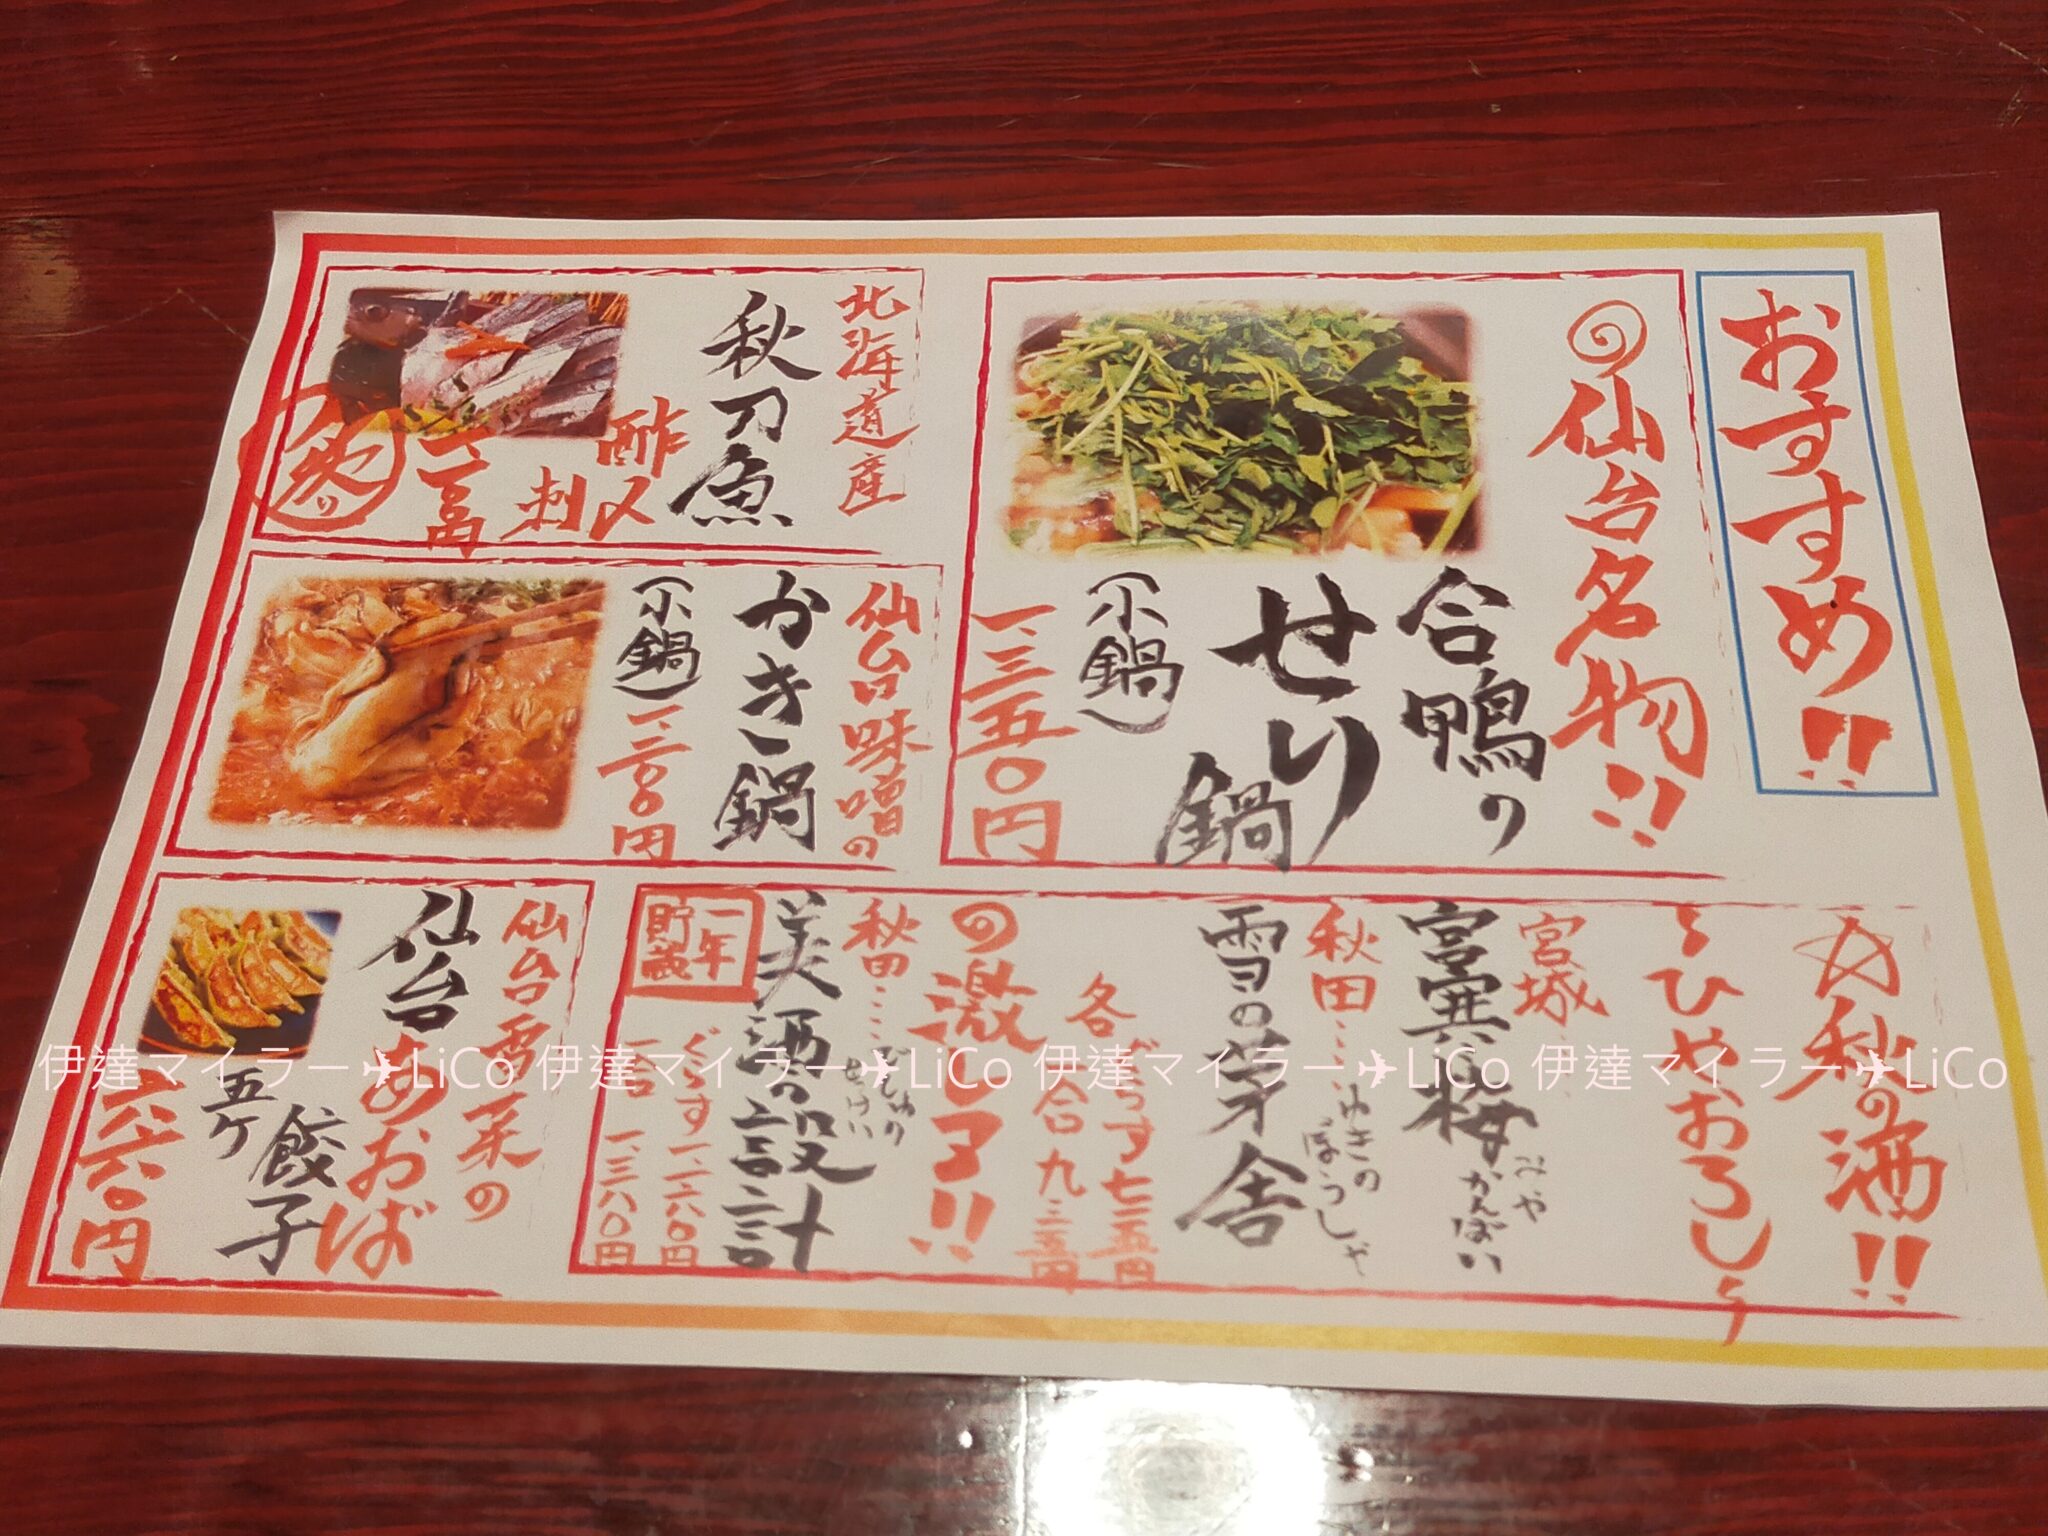 おすすめ!!
仙台名物!!
合鴨の
せり鍋
(小鍋)
一、三五〇円
北海道産
秋刀魚
酢〆
刺
炙り
仙台味噌の
かき鍋
(小鍋)
円
秋の酒!!
ひやおろし
宮城
宮寒梅
みやかんばい
秋田…
雪の茅舎
ゆきのぼうしゃ
各ぐらす七五〇円
一合
激レア!!
秋田…
美酒の設計
びしゅのせっけい
一年
貯蔵
ぐらす
一合
仙台雪菜の
仙台あおば
餃子
五ケ
六六〇円
伊達マイラー✈LiCo 伊達マイラー✈LiCo 伊達マイラー✈LiCo 伊達マイラー✈LiCo